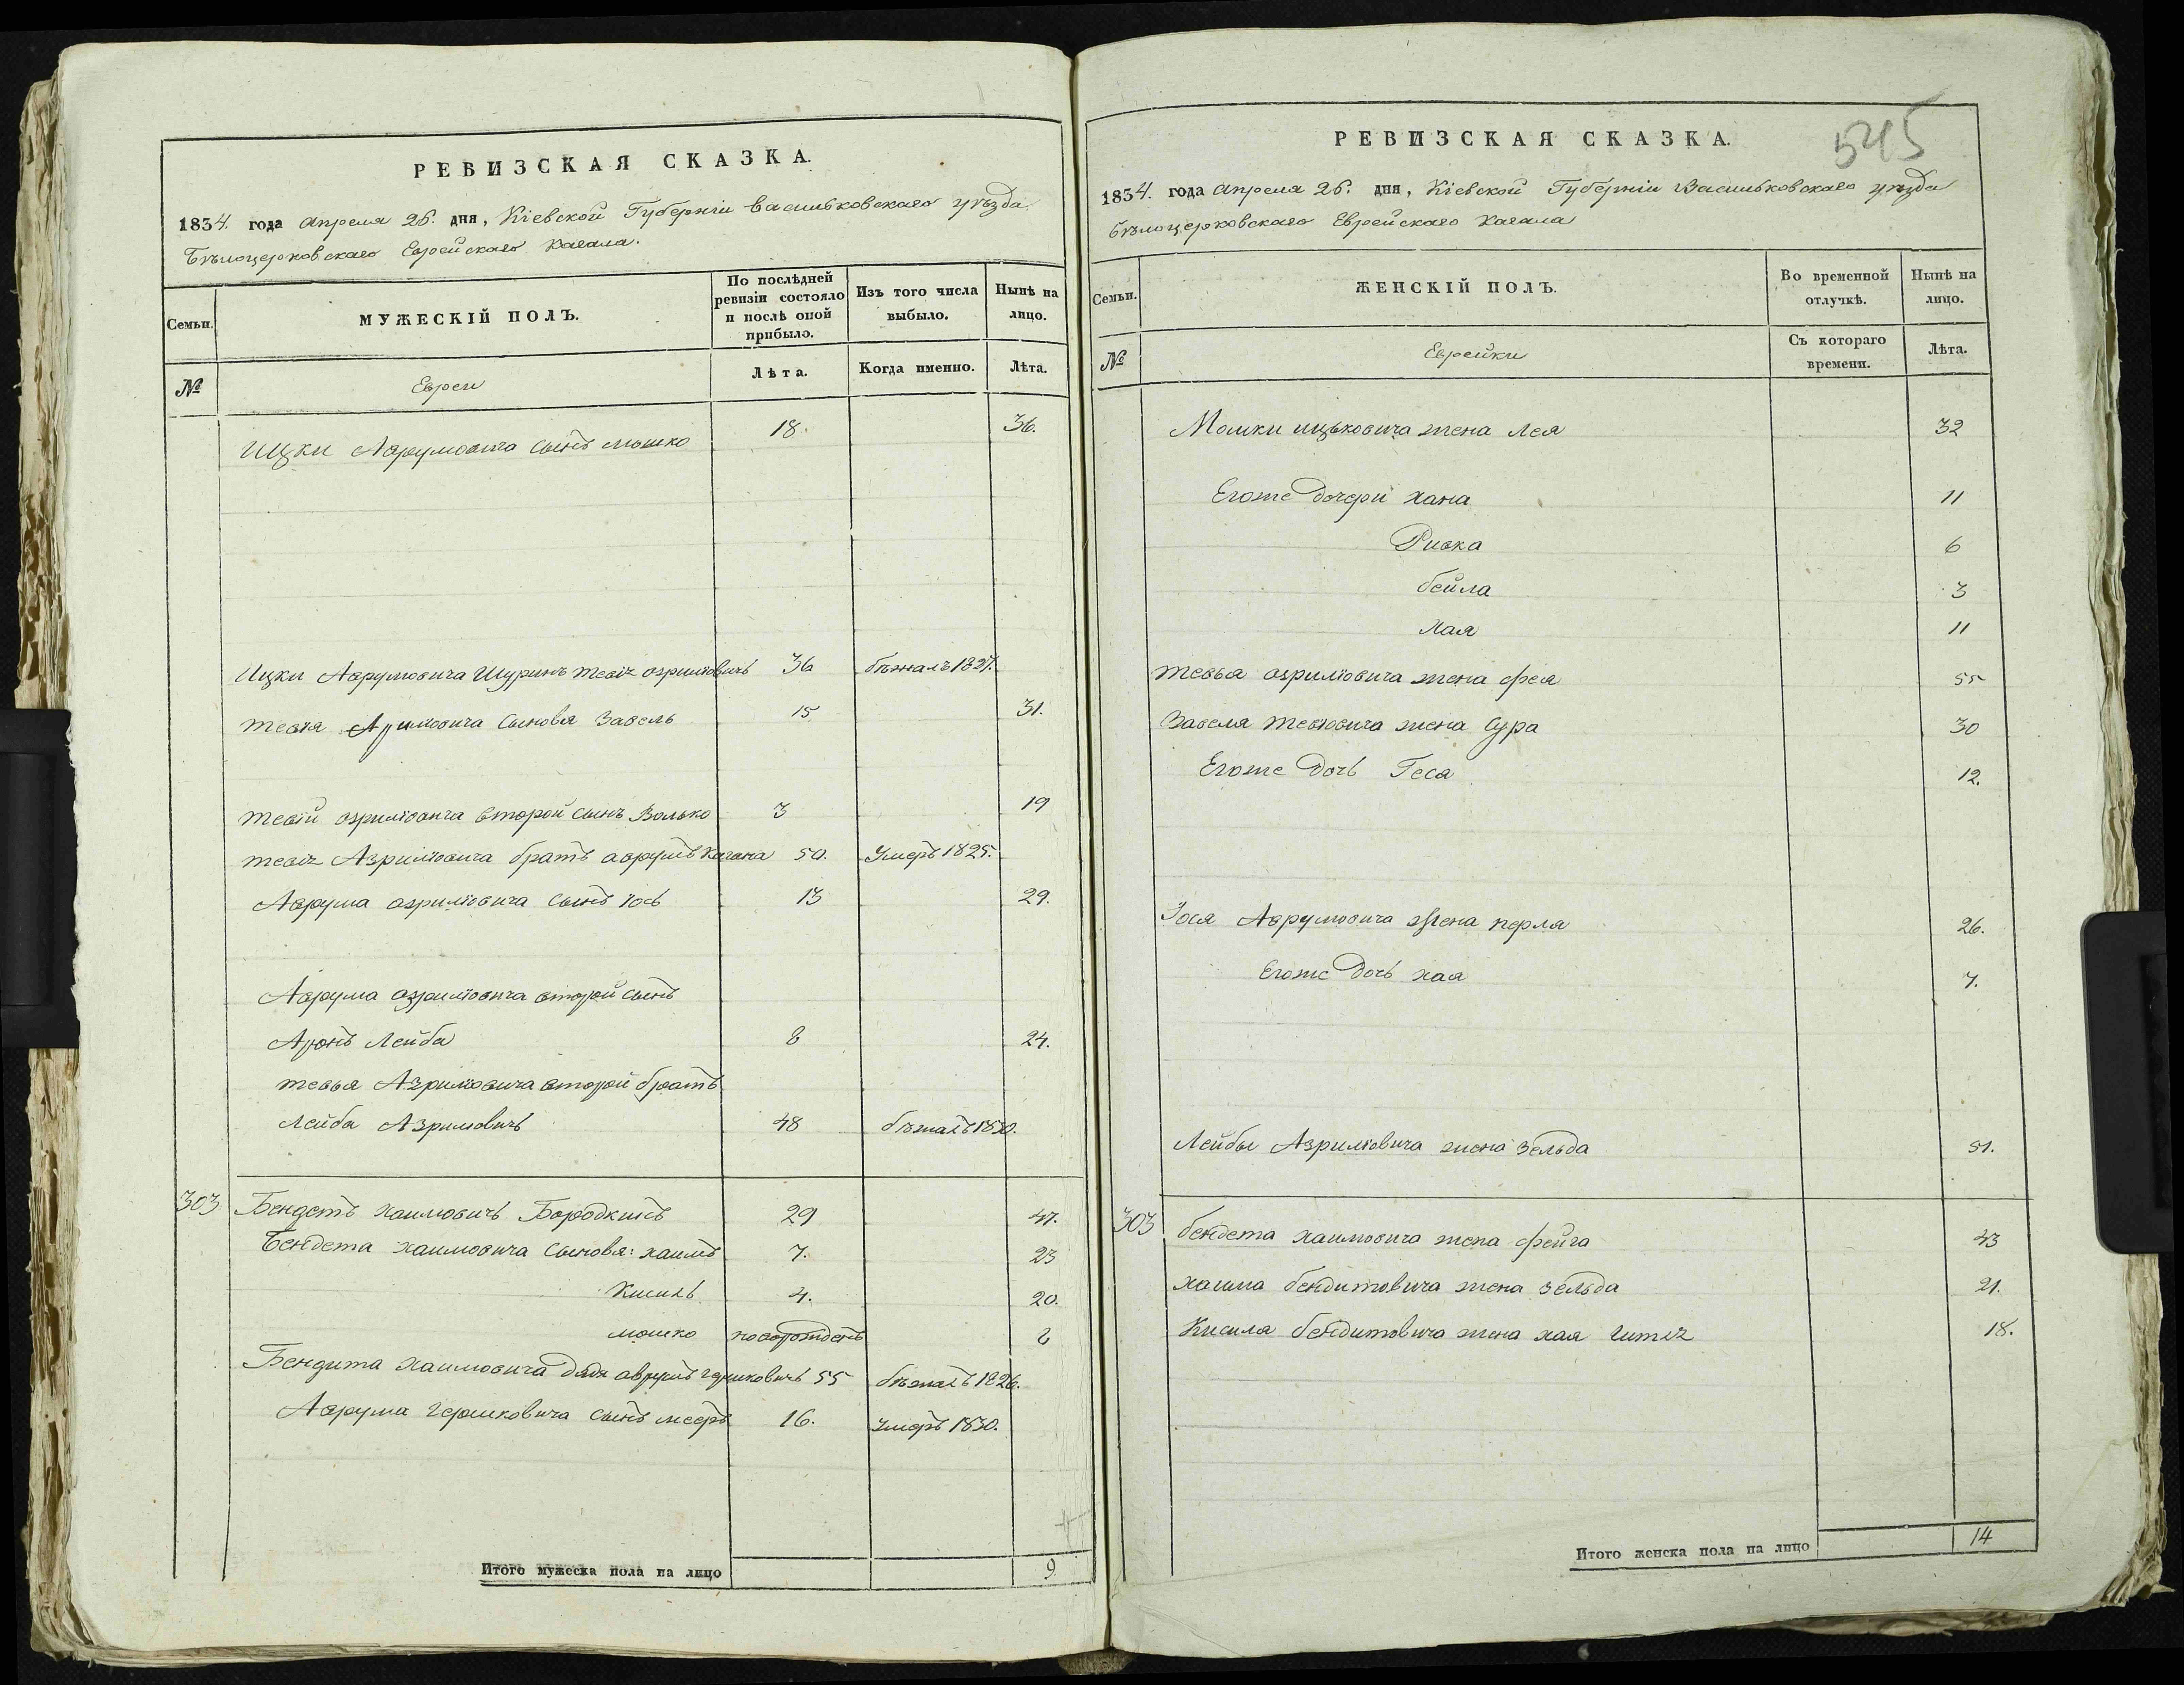 РЕВИЗСКАЯ СКАЗКА.
1834. года Апреля 26. дня, Кіевской Губерніи Васильковскаго уѣзда
Бѣлоцерковскаго Еврейскаго Кагала.
Семьи.
МУЖЕСКІЙ ПОЛЪ.
По послѣдней ревизіи состояло и послѣ оной прибыло.
Изъ того числа выбыло.
Нынѣ на лицо.
№
Евреи
Лѣта.
Когда именно.
Лѣта.
Ицки Аврумовича сынъ мошко 18. 36.
Ицки Аврумовича Шуринъ тевіе азриліовичь 36 бѣжалъ 1827.
тевія Азриліовича сыновя Завель 15 31.
тевій азриліовича второй сынъ Волько 3 19
тевіе Азриліовича братъ аврумъ Кагана 50. Умеръ 1825.
Аврума азриліовича сынъ іось 13 29.
Аврума азриліовича второй сынъ
Аронъ Лейба 8 24.
тевья Азриліовича второй братъ
Лейба Азриловичь 48 бѣжалъ 1830.
303 Бендетъ хаимовичь Бородкинъ 29 47.
Бендета хаимовича сыновя: хаимъ 7. 23
Кисиль 4. 20.
мошко новорожденъ 2
Бендита хаимовича дядя аврумъ гершковичь 55 бѣжалъ 1826.
Аврума гершковича сынъ мееръ 16. умеръ 1830.
Итого мужеска пола на лицо 9
545
РЕВИЗСКАЯ СКАЗКА.
1834. года Апреля 26. дня, Кіевской Губерніи Васильковскаго уѣзда
бѣлоцерковскаго Еврейскаго Кагала
Семьи.
ЖЕНСКІЙ ПОЛЪ.
Во временной отлучкѣ.
Нынѣ на лицо.
№
Еврейки
Съ котораго времени.
Лѣта.
Мошки ицьковича жена Лея 32
Егоже дочери хана 11
Ривка 6
бейла 3
Хая 11
тевья азриліовича жена фея 55
Завеля тевіовича жена Сура 30
Егоже дочь Геся 12.
Іося Аврумовича жена перля 26.
Егоже дочь хая 7.
Лейбы Азриліовича жена зельда 51.
303 бендета хаимовича жена фейга 43
хаима бендитовича жена зельда 21.
Кисиля бендитовича жена хая 18.
Итого женска пола на лицо 14